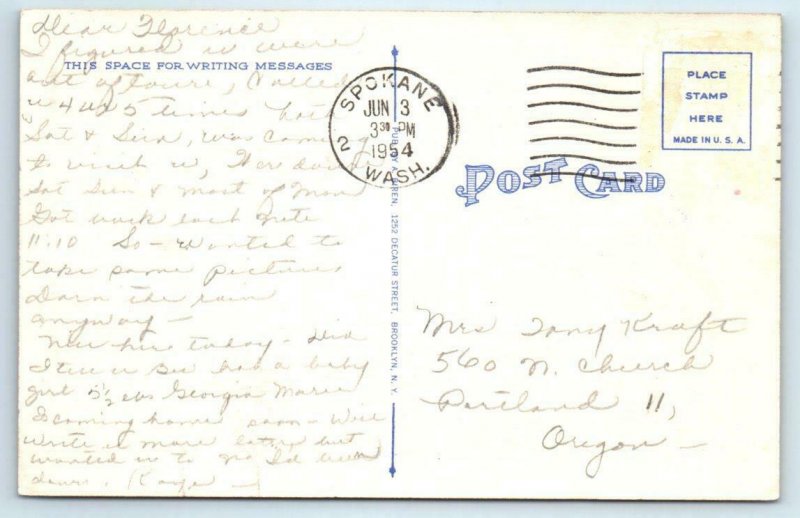 Dear Florence
I figured u were
THIS SPACE FOR WRITING MESSAGES
out of town, Called
u 4 or 5 times
Sat & Sun, was coming
to visit u, Here during
Sat Sun & most of Mon
Got work last nite
11:10 So - Wanted to
take some pictures
Darn the rain
anyway -
Nice here today - Did
I tell u Bev had a baby
girl 5 1/2 lbs Georgia Marie
Is coming home soon - Will
write u more later but
wanted u to no I'd been
down, Kaye -
PUB. BY
1252 DECATUR STREET, BROOKLYN, N. Y.
SPOKANE
JUN 3
3 30 PM
1954
2 WASH.
PLACE
STAMP
HERE
MADE IN U. S. A.
POST CARD
Mrs Tony Kraft
560 N. Church
Portland 11,
Oregon -